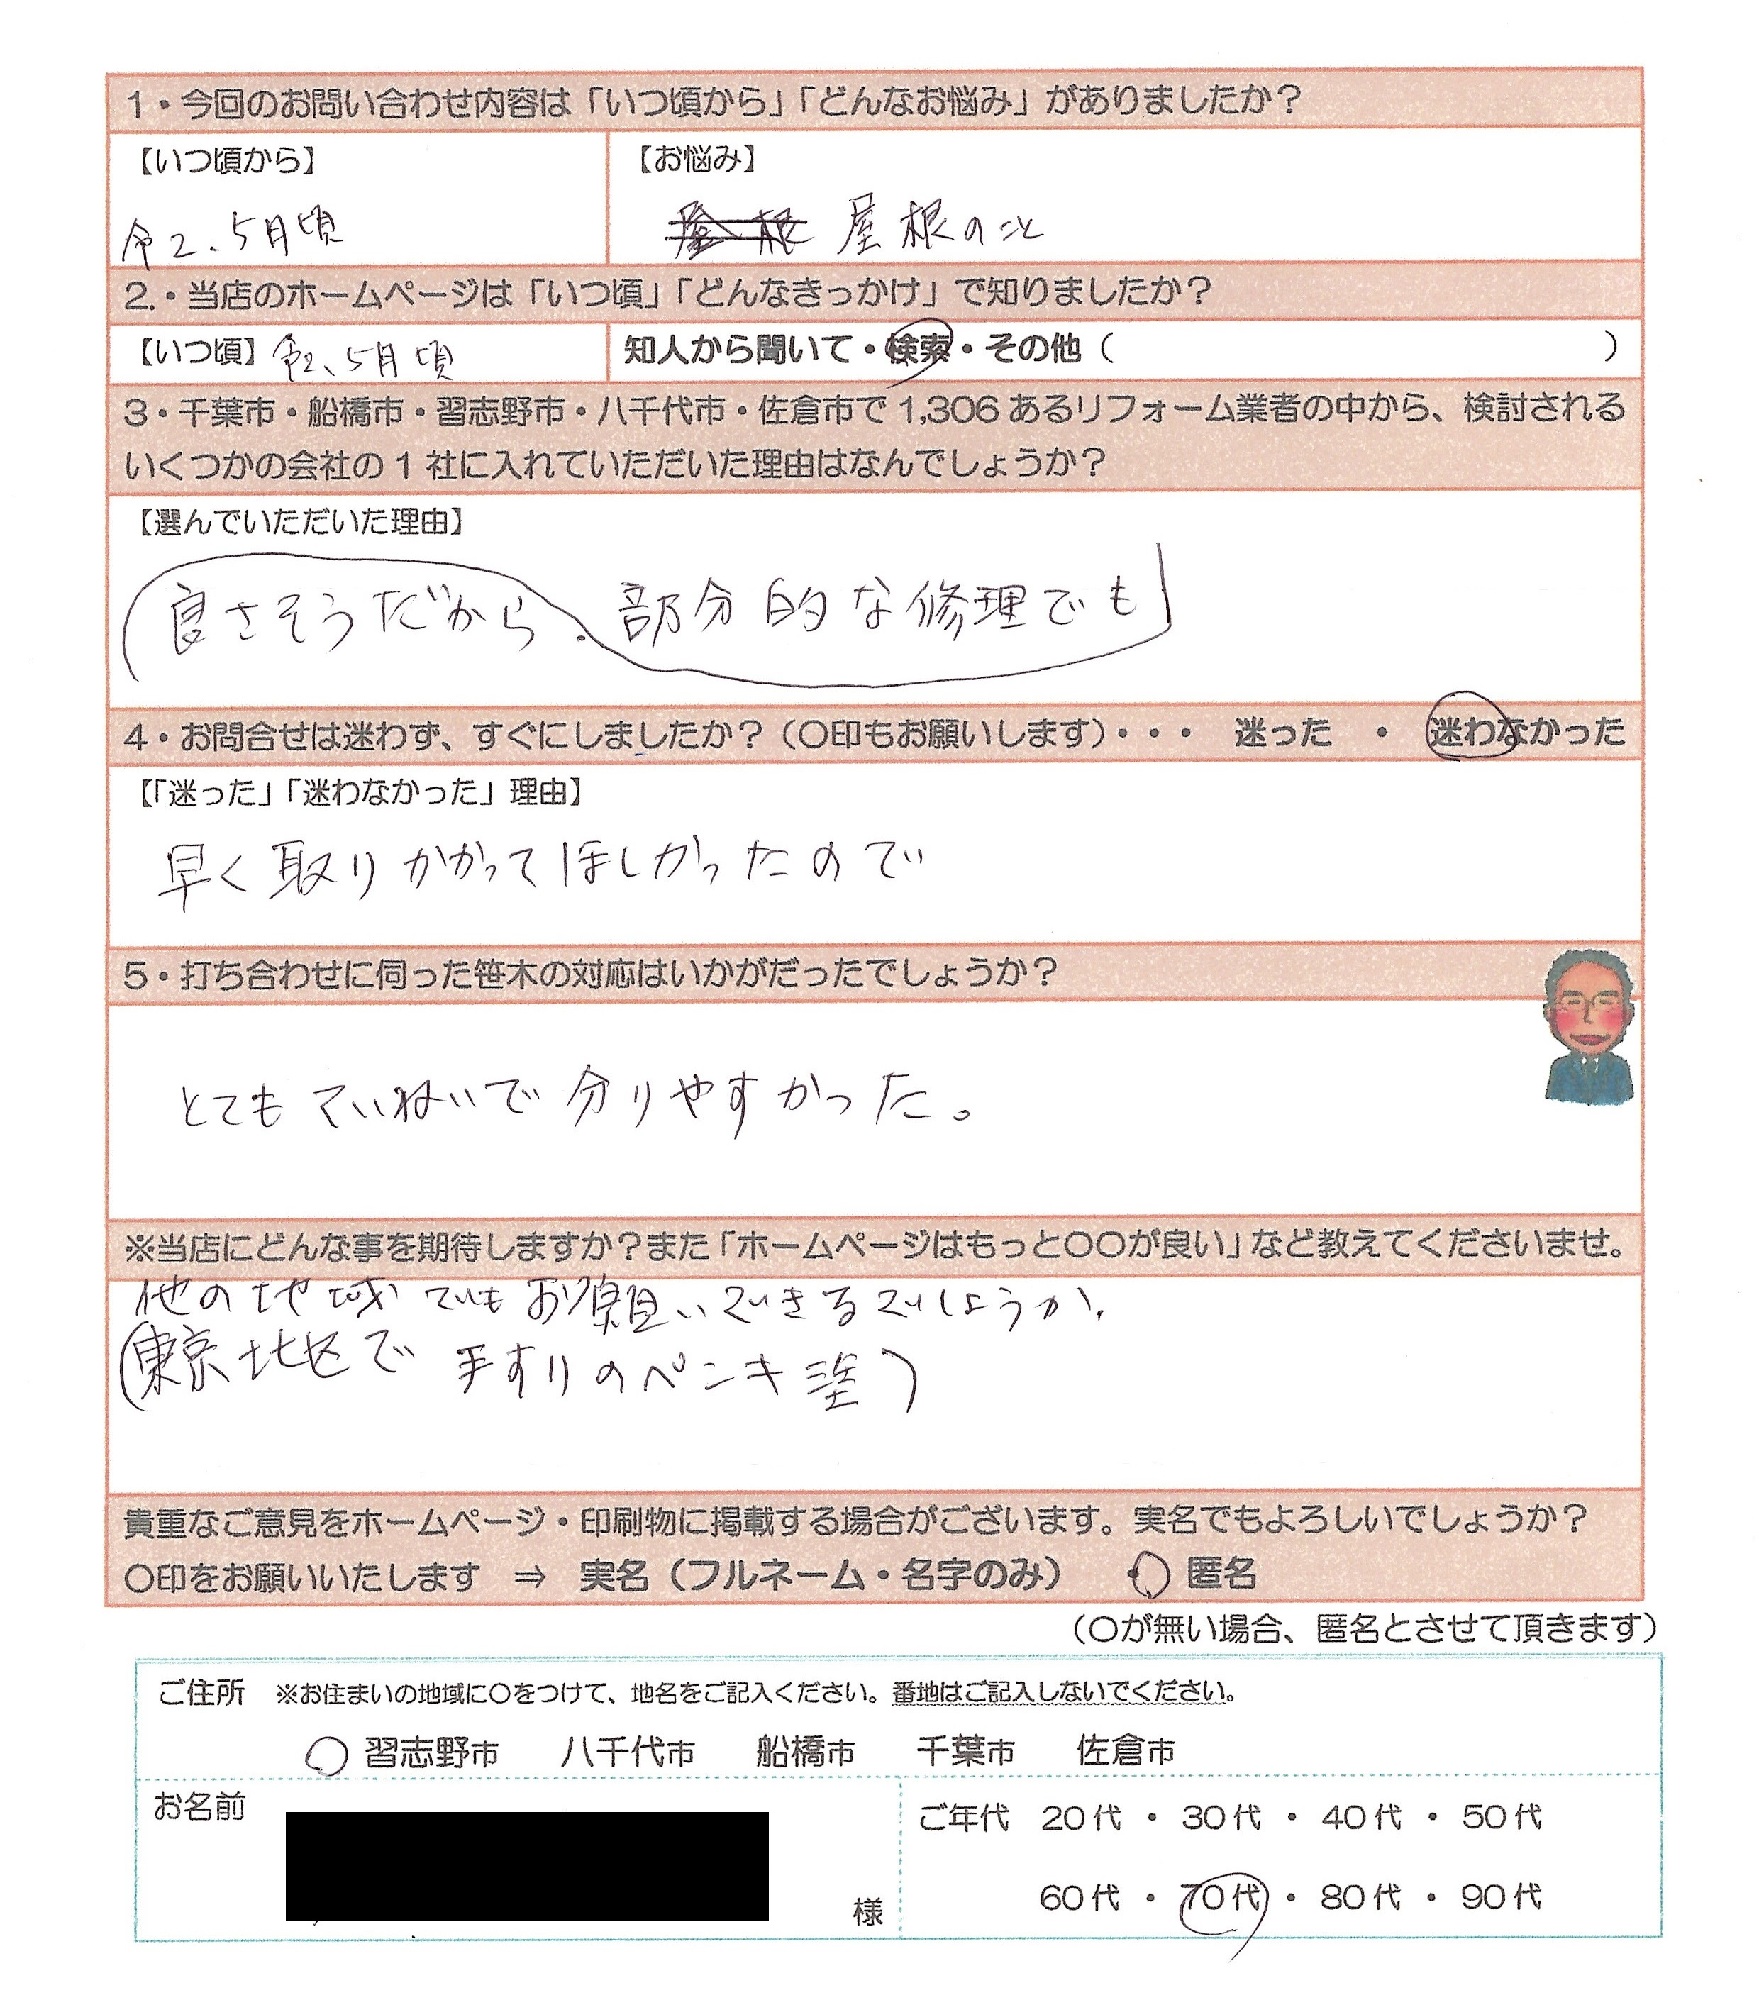 1・今回のお問い合わせ内容は「いつ頃から」「どんなお悩み」がありましたか？
【いつ頃から】
【お悩み】
令2.5月頃
屋根 屋根のこと
2.・当店のホームページは「いつ頃」「どんなきっかけ」で知りましたか？
【いつ頃】令2、5月頃
知人から聞いて・検索・その他（ ）
3・千葉市・船橋市・習志野市・八千代市・佐倉市で1,306あるリフォーム業者の中から、検討される
いくつかの会社の1社に入れていただいた理由はなんでしょうか？
【選んでいただいた理由】
良さそうだから、部分的な修理でも
4・お問合せは迷わず、すぐにしましたか？（〇印もお願いします）・・・ 迷った ・ 迷わなかった
【「迷った」「迷わなかった」理由】
早く取りかかってほしかったので
5・打ち合わせに伺った笹木の対応はいかがだったでしょうか？
とてもていねいで分りやすかった。
※当店にどんな事を期待しますか？また「ホームページはもっと〇〇が良い」など教えてくださいませ。
他の地域でもお願いできるでしょうか、
（東京地区で 手すりのペンキ塗）
貴重なご意見をホームページ・印刷物に掲載する場合がございます。実名でもよろしいでしょうか？
〇印をお願いいたします ⇒ 実名（フルネーム・名字のみ） ・ 匿名
（〇が無い場合、匿名とさせて頂きます）
ご住所 ※お住まいの地域に〇をつけて、地名をご記入ください。番地はご記入しないでください。
習志野市 八千代市 船橋市 千葉市 佐倉市
お名前
様
ご年代 20代 ・ 30代 ・ 40代 ・ 50代
60代 ・ 70代 ・ 80代 ・ 90代